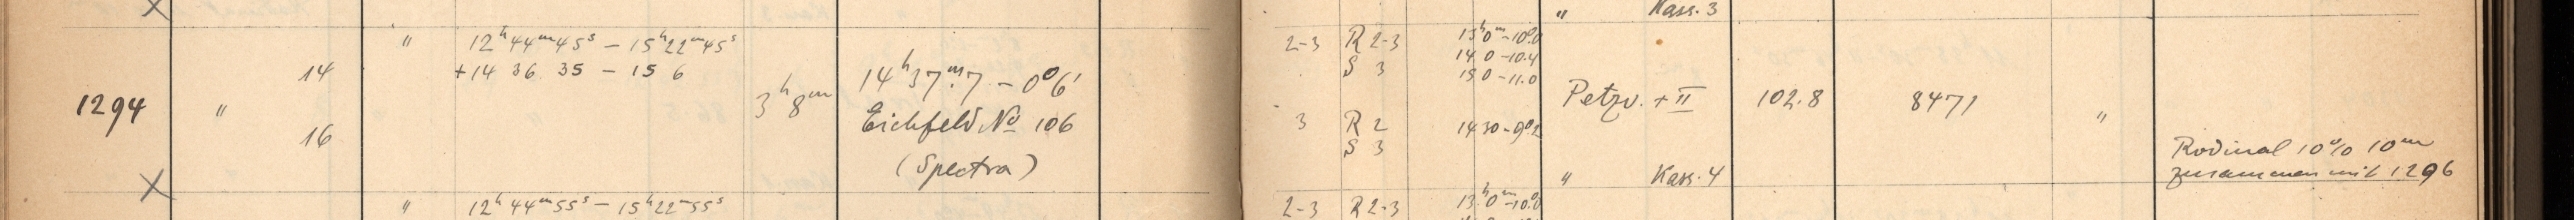 " Kass. 3
" 12ʰ44ᵐ45ˢ – 15ʰ22ᵐ45ˢ 2-3 R 2-3 13ʰ0ᵐ-10°.0
14 +14 36 35 – 15 6 S 3 14 0 -10.4
15 0 -11.0
1294 " 3ʰ8ᵐ 14ʰ37ᵐ.7 – 0°6' Petzv. + II 102.8 8471 "
16 Eichfeld No 106 3 R 2 14 30 - 9°.2
S 3
(Spectra) Rodinal 10% 10ᵐ
" Kass. 4 zusammen mit 1296
" 12ʰ44ᵐ55ˢ – 15ʰ22ᵐ55ˢ 2-3 R 2-3 13ʰ0ᵐ-10°.0